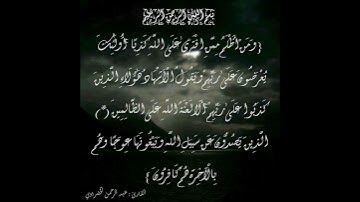 بسم الله الرحمن الرحيم
{ وَمَنْ أَظْلَمُ مِمَّنِ افْتَرَى عَلَى اللَّهِ كَذِبًا أُولَئِكَ
يُعْرَضُونَ عَلَى رَبِّهِمْ وَيَقُولُ الْأَشْهَادُ هَؤُلَاءِ الَّذِينَ
كَذَبُوا عَلَى رَبِّهِمْ أَلَا لَعْنَةُ اللَّهِ عَلَى الظَّالِمِينَ (*)
الَّذِينَ يَصُدُّونَ عَنْ سَبِيلِ اللَّهِ وَيَبْغُونَهَا عِوَجًا وَهُمْ
بِالْآخِرَةِ هُمْ كَافِرُونَ }
القارئ : عبد الرحمن